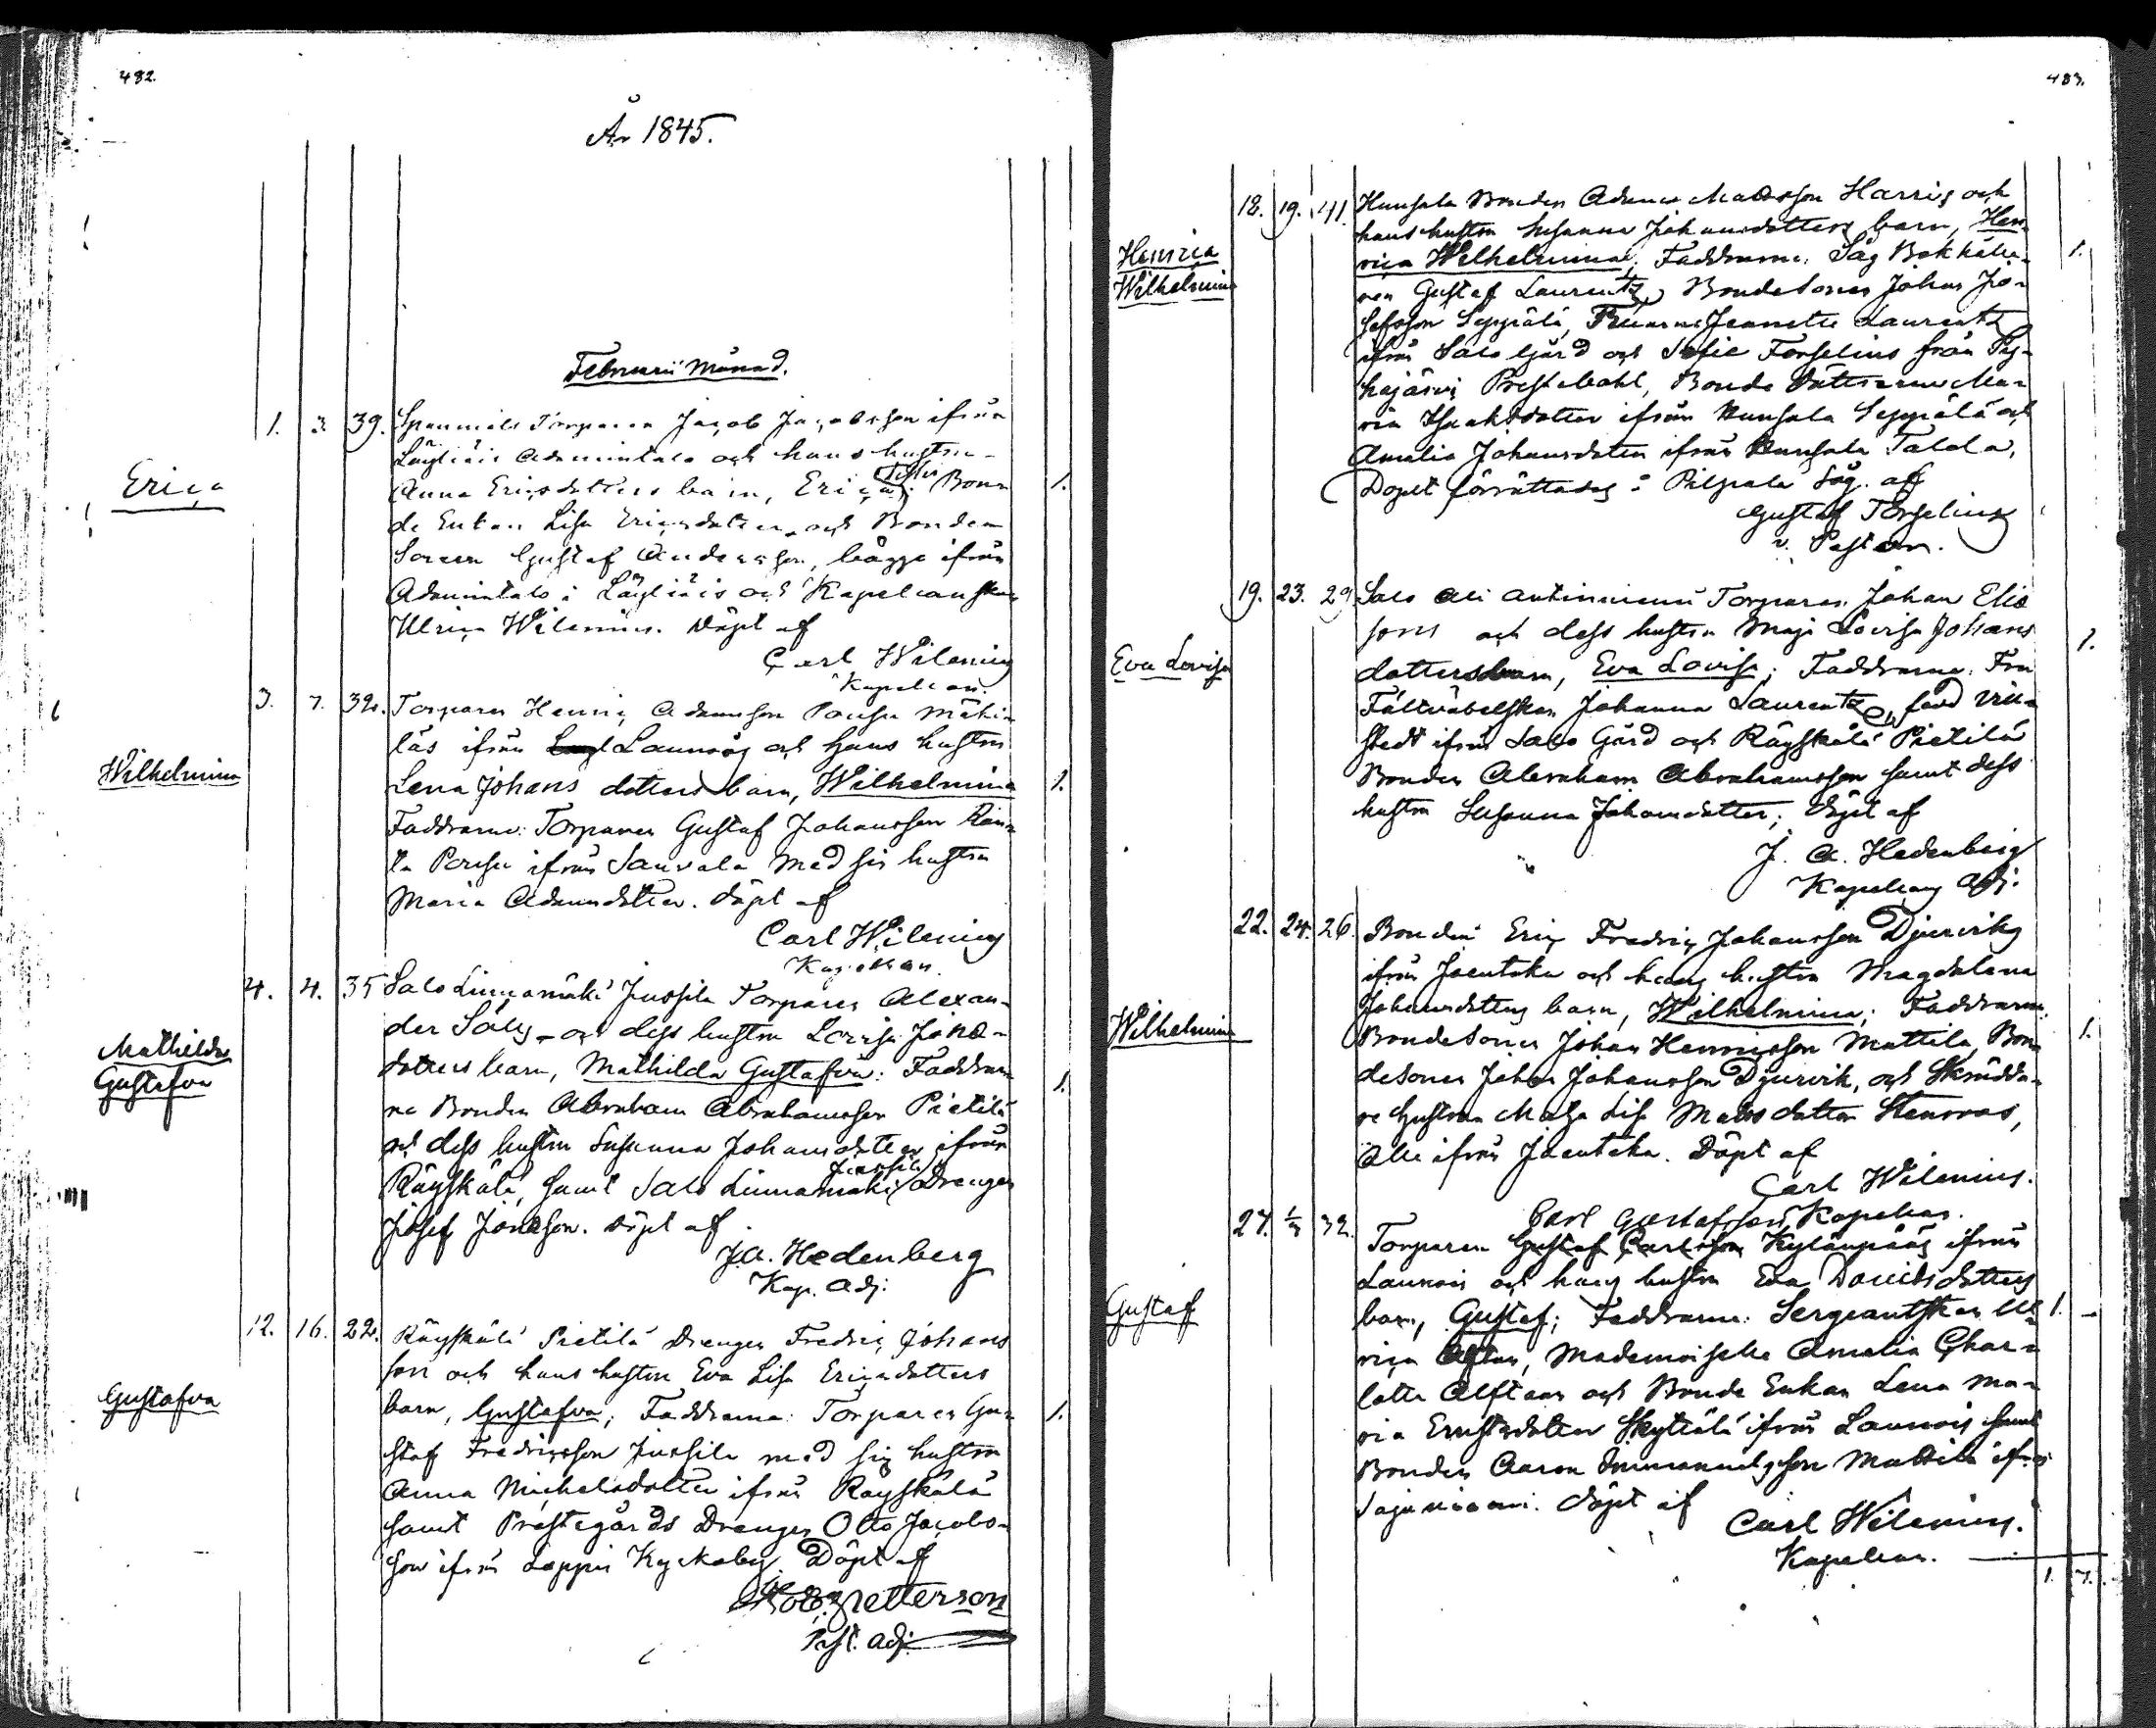 482.
År 1845.
Februarii Månad.
1. 3. 39. Torparen Jacob Jacobsson ifrån
Läyliäis Adamintalo och hans hustru
Erica
Anna Ericsdotters barn, Erica; Testes Bon- 1.
de Enkan Lisa Ericsdotter och Bonde
Sonen Gustaf Andersson, bägge ifrån
Adamintalo i Läyliäis och Kapellanskan
Ulrica Wilenius. Döpt af
Carl Wilenius
Kapellan.
3. 7. 32. Torparen Henric Adamsson Pousu Mäki-
läs ifrån Launois och hans hustru
Wilhelmina
Lena Johansdotters barn, Wilhelmina 1.
Faddrarne: Torparen Gustaf Johansson
Pousu ifrån Sauvala med sin hustru
Maria Adamsdotter. Döpt af
Carl Wilenius
Kapellan.
4. 4. 35 Salo Linnamäki Jussila Torparen Alexan-
der och dess hustru Lovisa Jonæ-
Mathilda
Gustafva
dotters barn, Mathilda Gustafva: Faddrar- 1.
ne Bonden Abraham Abrahamsson Pietilä
och dess hustru Susanna Johansdotter ifrån
Räyskälä, samt Salo Linnamäki Jussila Drengen
Josef Jonæson. Döpt af
J. A. Hedenberg
Kap. Adj.
12. 16. 22. Räyskälä Pietilä Drengen Fredric Johans
son och hans hustru Eva Lisa Ericsdotters
Gustafva
barn, Gustafva; Faddrarne: Torparen Gu- 1.
staf Fredricsson Jussila med sin hustru
Anna Michelsdotter ifrån Räyskälä
samt Prestegårds Drengen Otto Jacobs-
son ifrån Loppis Kyrkoby. Döpt af
Petterson
Past. Adj.
483.
18. 19. 41. Hunsala Bonden Adam Matsson Harris och
hans hustru Susanna Johansdotters barn, Hen-
Henrica
Wilhelmina
rica Wilhelmina; Faddrarne: Såg Bokhålla- 1.
ren Gustaf Laurentz, Bondesonen Johan Jo-
sefsson Seppälä, Jeannette Laurentz
ifrån Salo Gård och Sofie Forselius från Py-
häjärvi Prestebohl, Bonde Dottrarne Ma-
ria Isaksdotter ifrån Hunsala Seppälä och
Amalia Johansdotter ifrån Hunsala Talola,
Dopet förrättades i Pilpala Såg. af
Gustaf Forselius
v. Pastor.
19. 23. 29. Salo Ali Antinniemi Torparen Johan Eliæ
sons och dess hustru Maja Lovisa Johans
Eva Lovisa
dotters barn, Eva Lovisa; Faddrarne: Fru 1.
Fältväbelskan Johanna Laurentz, född
stedt ifrån Salo Gård och Räyskälä Pietilä
Bonden Abraham Abrahamsson samt dess
hustru Susanna Johansdotter; Döpt af
J. A. Hedenberg
Kapellans Adj.
22. 24. 26. Bonden Eric Fredric Johansson Djurviks
ifrån Joentaka och hans hustru Magdalena
Wilhelmina
Johansdotters barn, Wilhelmina; Faddrarne: 1.
Bondesonen Johan Henricsson Mattila, Bon-
desonen Johan Johansson Djurvik, och Skrädda-
re hustrun Maja Lisa Matsdotter Stenroos,
Alle ifrån Joentaka. Döpt af
Carl Wilenius.
Kapellan.
27. 1/3 32. Torparen Gustaf Carlsson Carl Gustafsson Kylänpääs ifrån
Launois och hans hustru Eva Davidsdotters
Gustaf
barn, Gustaf; Faddrarne: Sergeantskan Ul- 1. -
rica Alftan, Mademoiselle Amalia Char-
lotta Alftan och Bonde Enkan Lena Ma-
ria Ernstsdotter Skyttälä ifrån Launois samt
Bonden Aaron Immanuelsson Mattila ifrån
Sajaniemi. Döpt af
Carl Wilenius.
Kapellan.
1. 7.